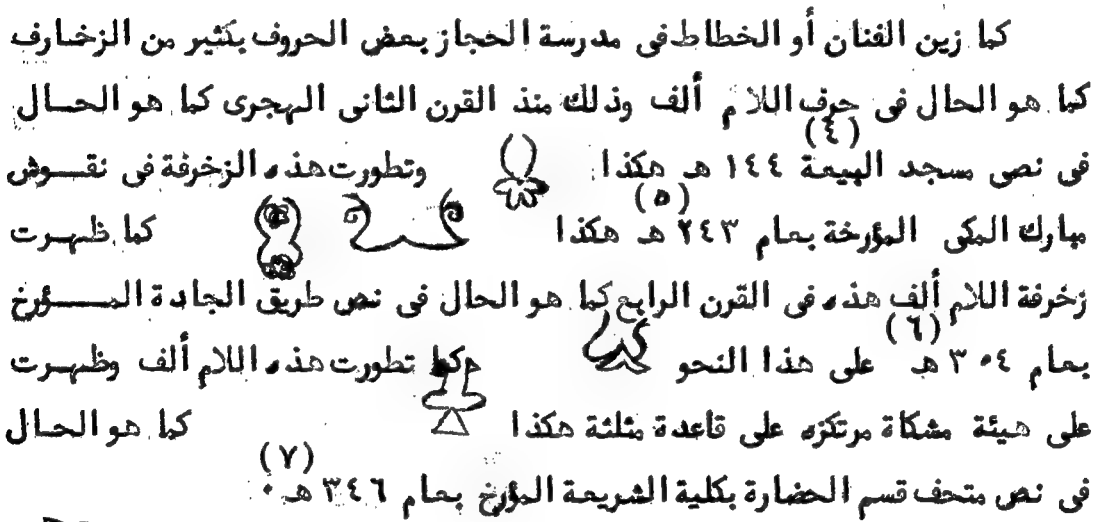 كما زين الفنان أو الخطاط فى مدرسة الحجاز بعض الحروف بكثير من الزخارف
كما هو الحال فى حرف اللام ألف وذلك منذ القرن الثانى الهجرى كما هو الحــال
فى نص مسجد البيعة (٤) ١٤٤ هـ هكذا وتطورت هذه الزخرفة فى نقــوش
مبارك المكى المؤرخة بعام ٢٤٣ هـ (٥) هكذا كما ظهرت
زخرفة اللام ألف هذه فى القرن الرابع كما هو الحال فى نص طريق الجادة المــــؤرخ
بعام ٣٠٤ هـ (٦) على هذا النحو وكما تطورت هذه اللام ألف وظهـرت
على هيئة مشكاة مرتكزه على قاعدة مثلثة هكذا كما هو الحال
فى نص متحف قسم الحضارة بكلية الشريعة المؤرخ بعام ٣٤٦ هـ (٧) ٠